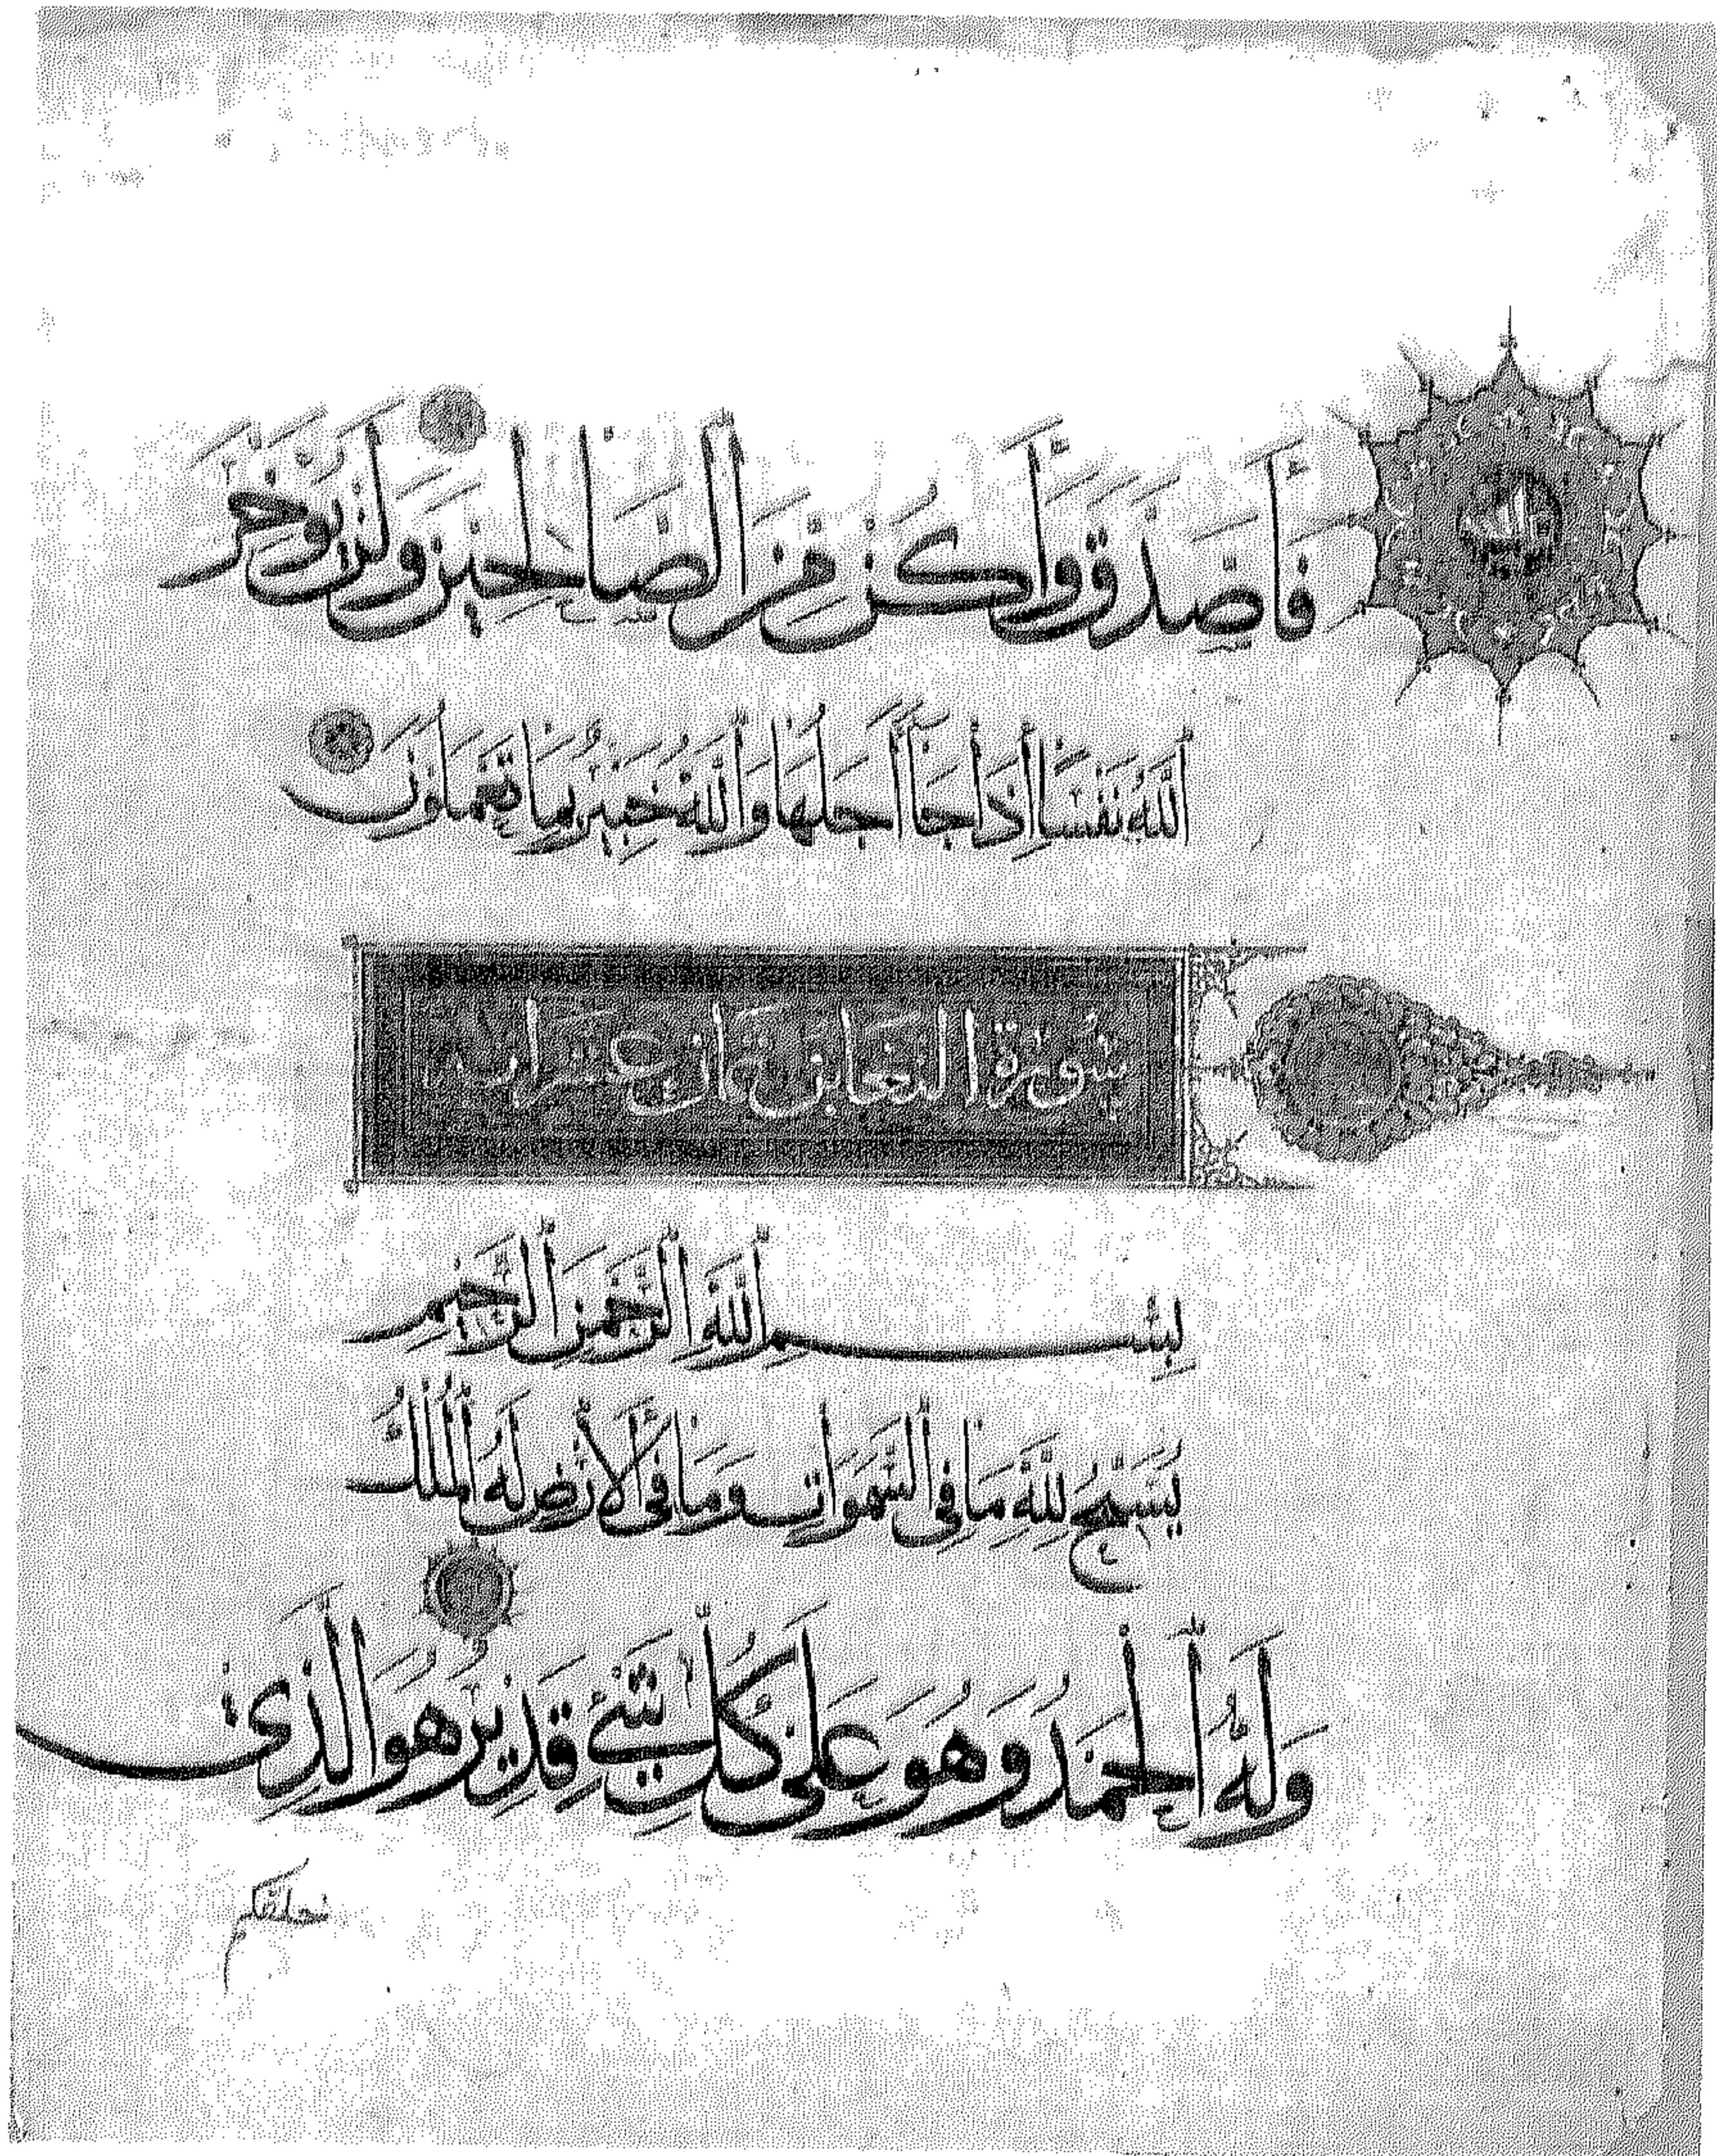 فَأَصَّدَّقَ وَأَكُنْ مِنَ الصَّالِحِينَ وَلَنْ يُؤَخِّرَ
اللَّهُ نَفْسًا إِذَا جَاءَ أَجَلُهَا وَاللَّهُ خَبِيرٌ بِمَا تَعْمَلُونَ
سورة التغابن ثماني عشر آية
بِسْمِ اللَّهِ الرَّحْمَنِ الرَّحِيمِ
يُسَبِّحُ لِلَّهِ مَا فِي السَّمَوَاتِ وَمَا فِي الْأَرْضِ لَهُ الْمُلْكُ
وَلَهُ الْحَمْدُ وَهُوَ عَلَى كُلِّ شَيْءٍ قَدِيرٌ هُوَ الَّذِي
خلقكم